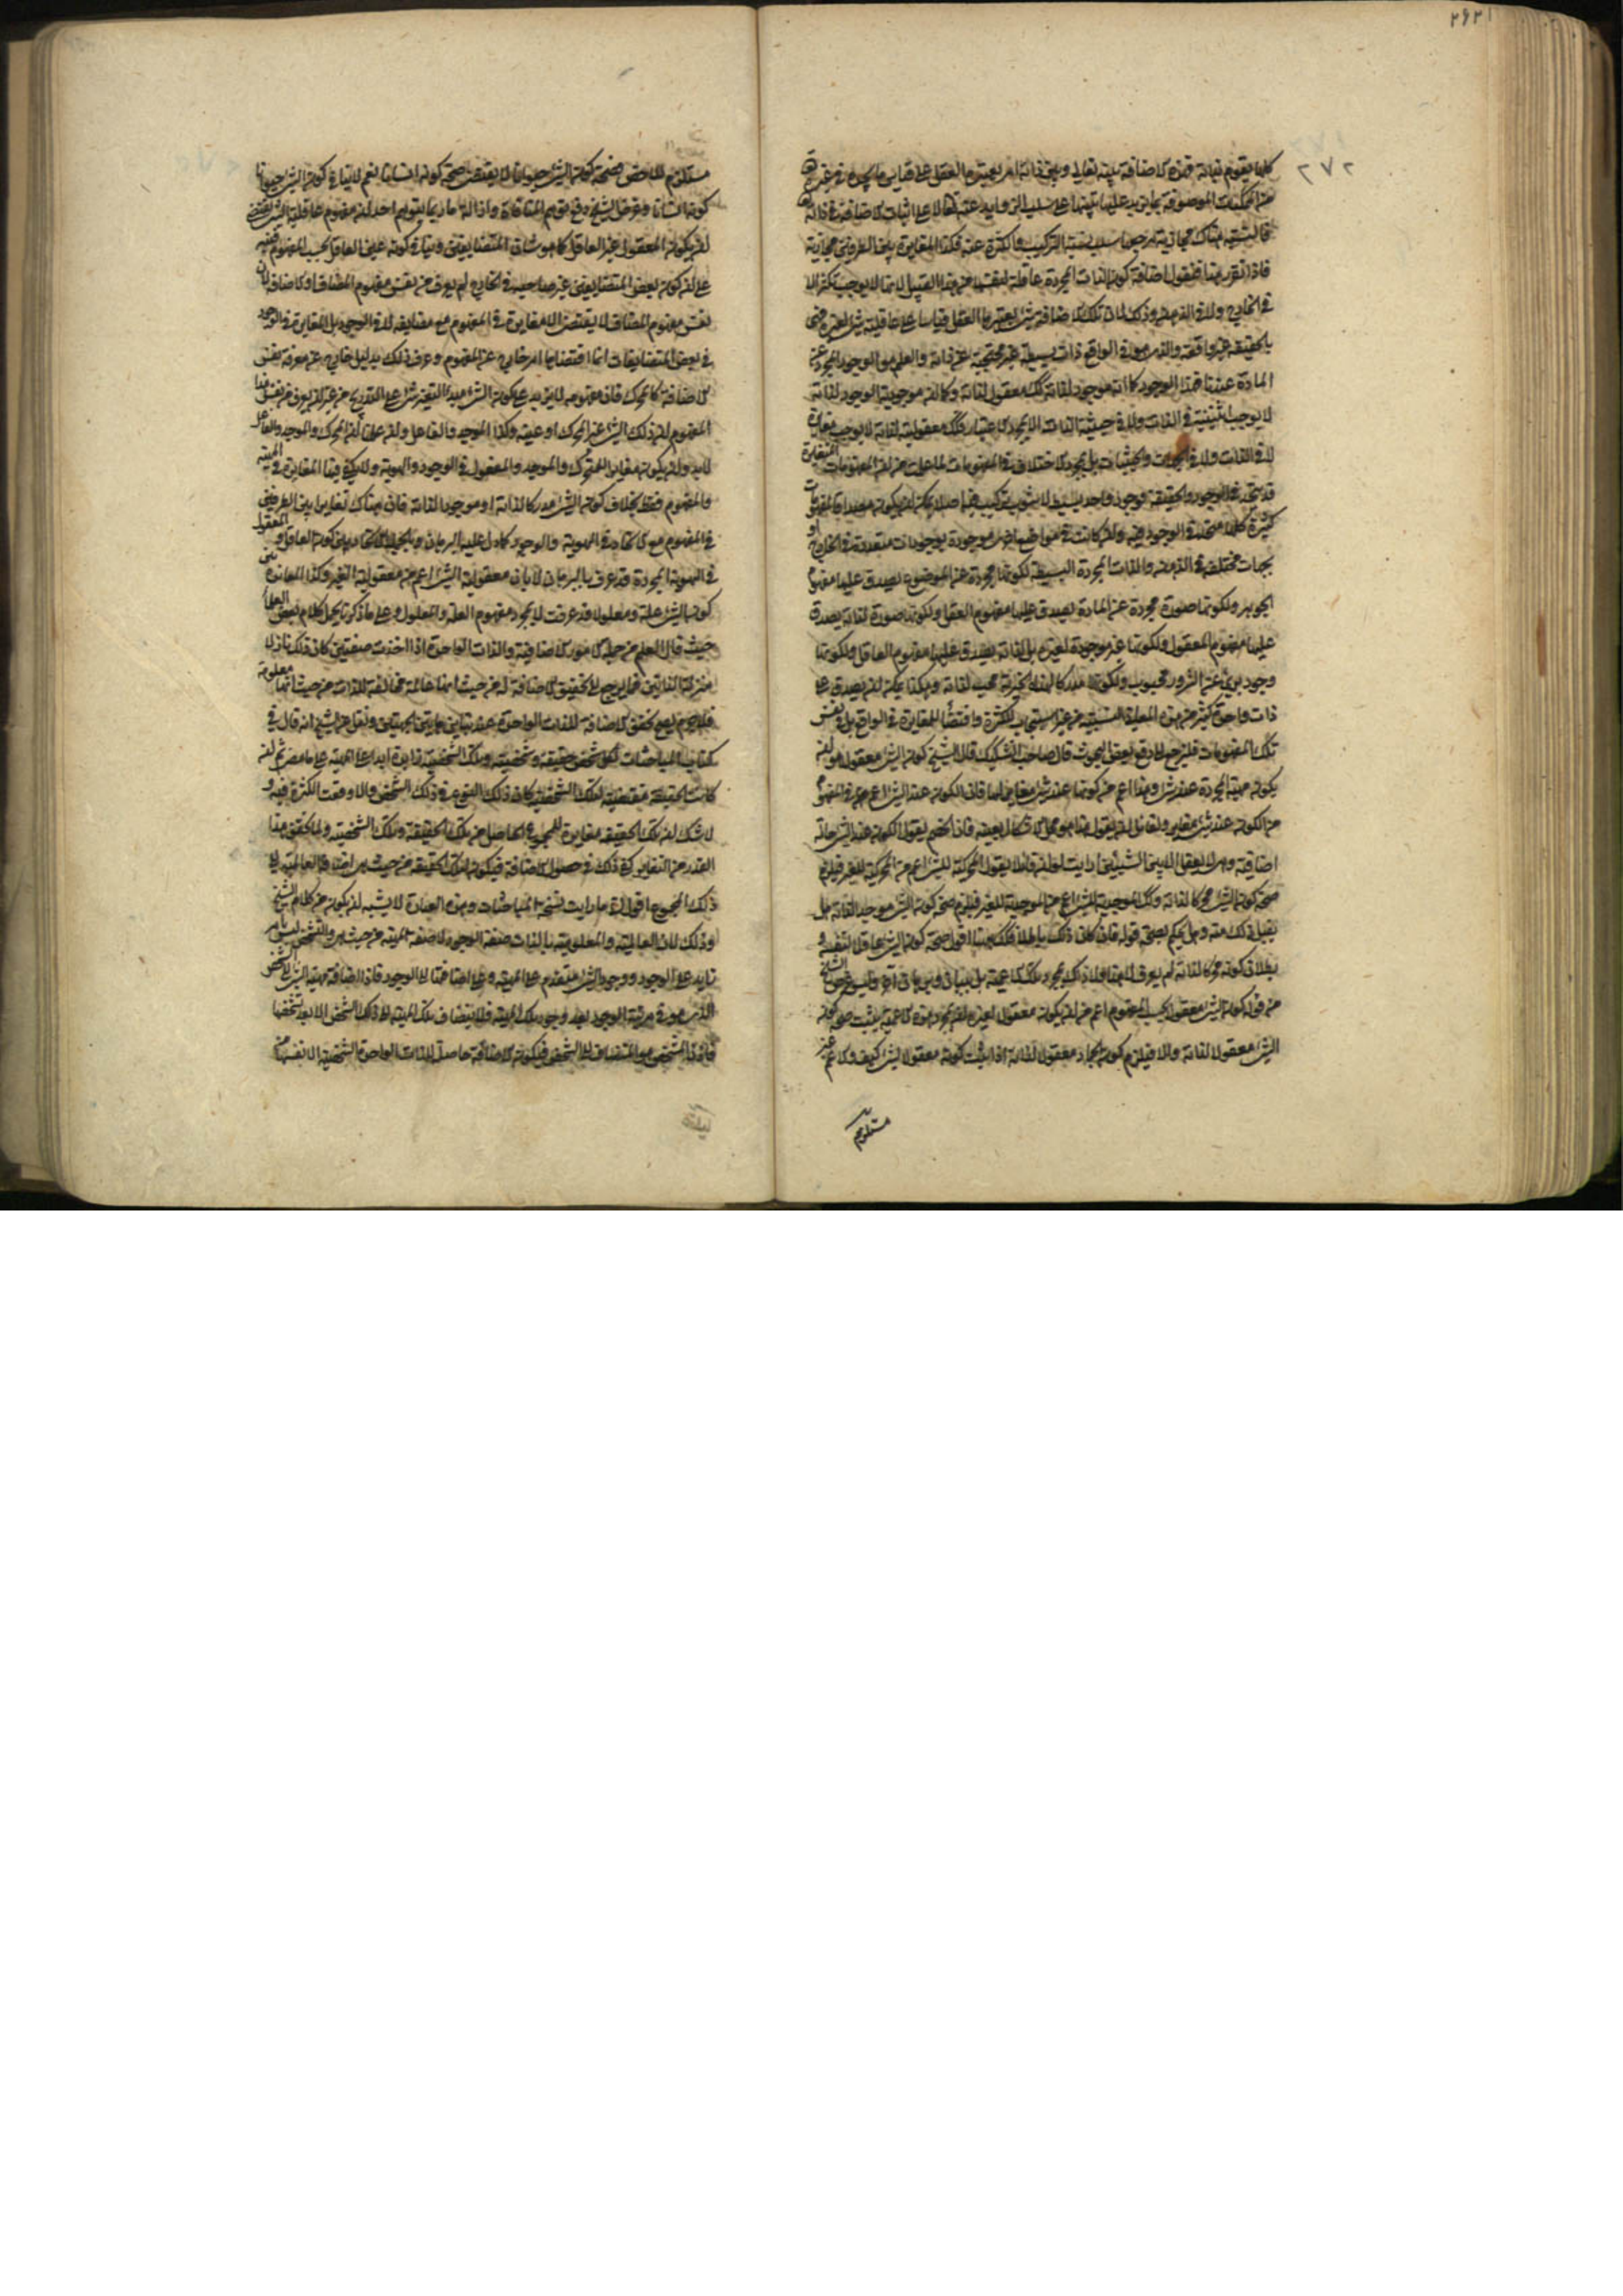 ٢٧٢
كلها يقوم بذاته فهذه الاضافة بينه تعالى وبين ذاته امر يعتبره العقل على قياس ما يكون في غيره
من الممكنات الموصوفة بما يزيد عليها
فالتشبيه هناك مجازية مرجعها سلب نسبة التركيب والكثرة عنه فكذا المغايرة بين الطرفين مجازية
فاذا تقرر هذا فنقول اضافة كون الذات المجردة عاقلة لنفسها من هذا القبيل لانها لا يوجب تكثرا لا
في الخارج ولا في الذهن وذلك لان تلك الاضافة شئ يعتبرها العقل قياسا على عاقلية شئ لغيره
بالحقيقة غير واقعة والذي هو في الواقع ذات بسيطة غير محتجبة عن ذاته والعلم هو الوجود المجرد عن
المادة عندنا فهذا الوجود كما انه موجود لذاته كك معقول لذاته وكما ان موجودية الوجود لذاته
لا يوجب اثنينية في الذات ولا في حيثية الذات الا بمجرد الاعتبار فكك معقوليته لذاته لا يوجب مغايرة
لا في الذات ولا في الجهات والحيثيات بل بمجرد الاختلاف في المفهومات لما علمت من ان المفهومات المتغايرة
قد يتحد في الوجود والحقيقة فوجود واحد بسيط لا شوب تركيب فيه اصلا يمكن ان يكون مصداقا لمفهومات
كثيرة كلها متحدة في الوجود فيه وان كانت في مواضع اخرى موجودة بوجودات متعددة في الخارج او
بجهات مختلفة في الذهن والذات المجردة البسيطة لكونها مجردة عن الموضوع يصدق عليها مفهوم
الجوهر ولكونها صورة مجردة عن المادة يصدق عليها مفهوم العقل ولكونها صورة لذاته يصدق
عليها مفهوم المعقول ولكونها غير موجودة لغيره بل لذاته يصدق عليها مفهوم العاقل ولكونها
وجود برئ عن الشرور محبوب ولكونه مدركا لهذه الخيرية محب لذاته وهكذا يمكن ان يصدق على
ذات واحدة كثير من هذه المعاني النسبية من غير استيجاب للكثرة واقتضاء للمغايرة في الواقع بل في نفس
تلك المفهومات فليرجع الى دفع بعض البحوث قال صاحب التشكيك قال الشيخ كون الشئ معقولا هو ان
يكون مهية المجردة عند شئ وهذا اعم من كونها عند شئ مغاير لها فان الكون عند الشئ اعم في المفهوم
من الكون عند شئ مغاير ولقائل ان يقول هذا هو محل الاشكال بعينه فان الخصم يقول الكون عند الشئ حالة
اضافية وهي لا يعقل الا بين الشيئين ارايت لو ان قائلا يقول المحركية للشئ اعم من المحركية للغير فيلزم
صحة كون الشئ محركا لذاته وكك الموجدية للشئ اعم من الموجدية للغير فيلزم صحة كون الشئ موجدا لذاته هل
يقبل ذلك منه وهل يحكم بصحة قوله فان كان ذلك باطلا فكك هيهنا اقول صحة كون الشئ عاقلا لنفسه و
بطلان كونه محركا لذاته لم يعرف
من قوله كون الشئ معقولا بحسب المفهوم اعم من ان يكون معقولا لغيره ان بمجرد هذه الاعمية يثبت صحة كون
الشئ معقولا لذاته والا فيلزم كون الجماد معقولا لذاته اذا ثبت كونه معقولا لشئ كيف والاعم غير
مستلزم
مستلزم للاخص فصحة كون الشئ حيوانا لا يقتضي صحة كونه انسانا نعم لا ينافي كون الشئ حيوانا
كونه انسانا وغرض الشيخ دفع توهم المنافاة وازالة ما ربما يتوهم احد ان مفهوم عاقلية الشئ يقتضي
ان يكون المعقول غير العاقل كما هو شان المتضايفين وينافي كونه عين العاقل بحسب المفهوم فنبه
على ان كون بعض المتضايفين غير صاحبه في الخارج لم يعرف من نفس مفهوم المضاف والاضافة لان
نفس مفهوم المضاف لا يقتضي الا مغايرة في المفهوم مع مضايفه لا في الوجود بل المغايرة في الوجود
في بعض المتضايفات انما اقتضاها امر خارج عن المفهوم وعرف ذلك بدليل خارج عن معرفة نفس
الاضافة كالمحرك فان مفهومه لا يزيد على كون الشئ مبدأ لتغير شئ على التدريج من غير ان يعرف من نفس هذا
المفهوم ان ذلك الشئ غير المحرك او عينه وكذا الموجد والفاعل
لابد وان يكون مغايرا للمتحرك والموجد والمعقول في الوجود والهوية ولا يكفي فيها المغايرة في المهية
والمفهوم فقط بخلاف كون الشئ مدركا لذاته او موجودا لذاته فان هناك تغاير بين الطرفين
في المفهوم مع الاتحاد في الهوية والوجود كما دل عليه البرهان وبالجملة الاتحاد بين كون العاقل والمعقول
في الهوية المجردة قد عرف بالبرهان لا بان معقولية الشئ اعم من معقولية الغير وكذا المعاندة بين
كون الشئ علة ومعلولا قد عرفت لا بمجرد مفهوم العلة والمعلول وعلى ما ذكرنا يحمل كلام بعض العلماء
حيث قال العلم من جملة الامور الاضافية والذات الواحدة اذا اخذت صفتين كان ذلك نازلا
منزلة الذاتين فيما يرجع الى تحقيق الاضافة له من حيث انها عالمة مخالفة للذات من حيث انها معلومة
فلا جرم يصح تحقق الاضافة للذات الواحدة عند تباين هاتين الجهتين ونقل عن الشيخ انه قال في
كتاب المباحثات لكل شخص حقيقة وشخصية وتلك الشخصية زايدة ابدا على المهية على ما مضى ثم ان
كانت الحقيقة مقتضية لتلك الشخصية كان ذلك النوع في ذلك الشخص والا وقعت الكثرة فيه و
لا شك ان تلك الحقيقة مغايرة للمجموع الحاصل من تلك الحقيقة وتلك الشخصية ولما تحقق هذا
القدر من التغاير كفى ذلك في حصول الاضافة فيكون لتلك الحقيقة من حيث هي اضافة العالمية الى
ذلك المجموع اقول انى ما رايت نسخة المباحثات وهذه العبارة لا يشبه ان يكون من كلام الشيخ
وذلك لان العالمية والمعلومية بالذات صفة الوجود لا صفة المهية من حيث هي والتشخص ليس بامر
زايد على الوجود ووجود الشئ متقدم على المهية وعلى اضافتها الى الوجود فاذا اضافة مهية الشئ الى الشخص
الذي هو في مرتبة الوجود بعد وجود تلك المهية فلا يتضاف تلك المهية الى ذلك الشخص الا بعد تشخصها
فاذن المتشخص هو المتضايف الى الشخص فيكون الاضافة حاصلة للذات الواحدة الشخصية الى نفسها